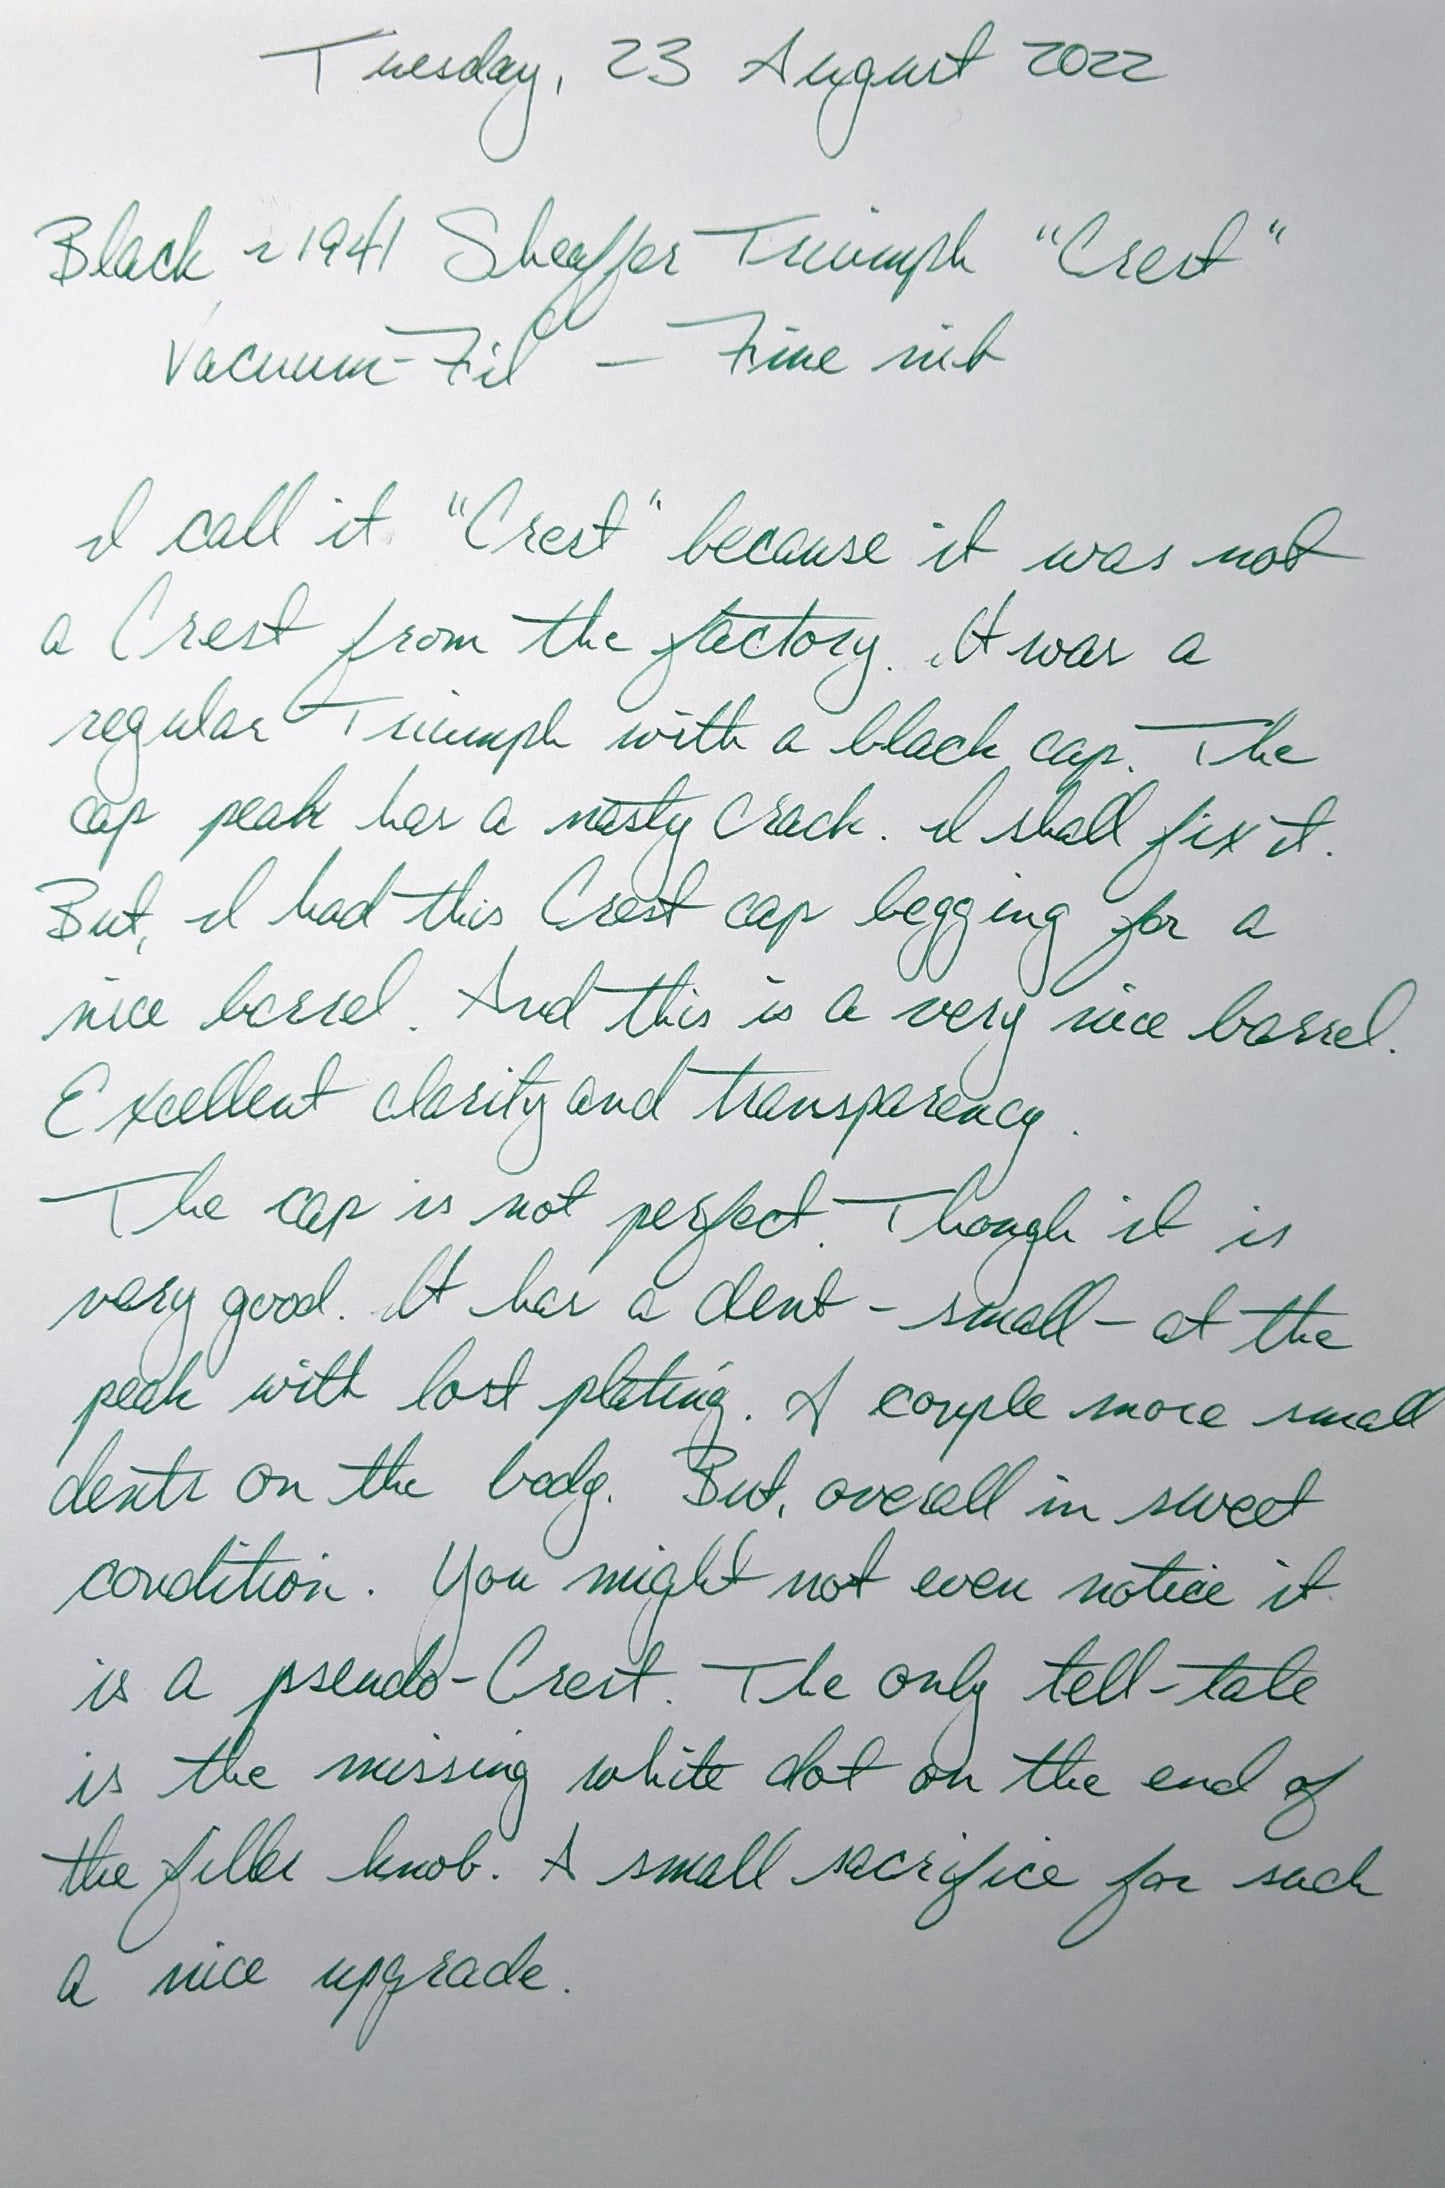 Tuesday, 23 August 2022
Black ~1941 Sheaffer Triumph "Crest"
Vacuum-Fil — Fine nib
I call it "Crest" because it was not
a Crest from the factory. It was a
regular Triumph with a black cap. The
cap peak has a nasty crack. I shall fix it.
But, I had this Crest cap begging for a
nice barrel. And this is a very nice barrel.
Excellent clarity and transparency.
The cap is not perfect. Though it is
very good. It has a dent - small - at the
peak with lost plating. A couple more small
dents on the body. But, overall in sweet
condition. You might not even notice it
is a pseudo-Crest. The only tell-tale
is the missing white dot on the end of
the filler knob. A small sacrifice for such
a nice upgrade.